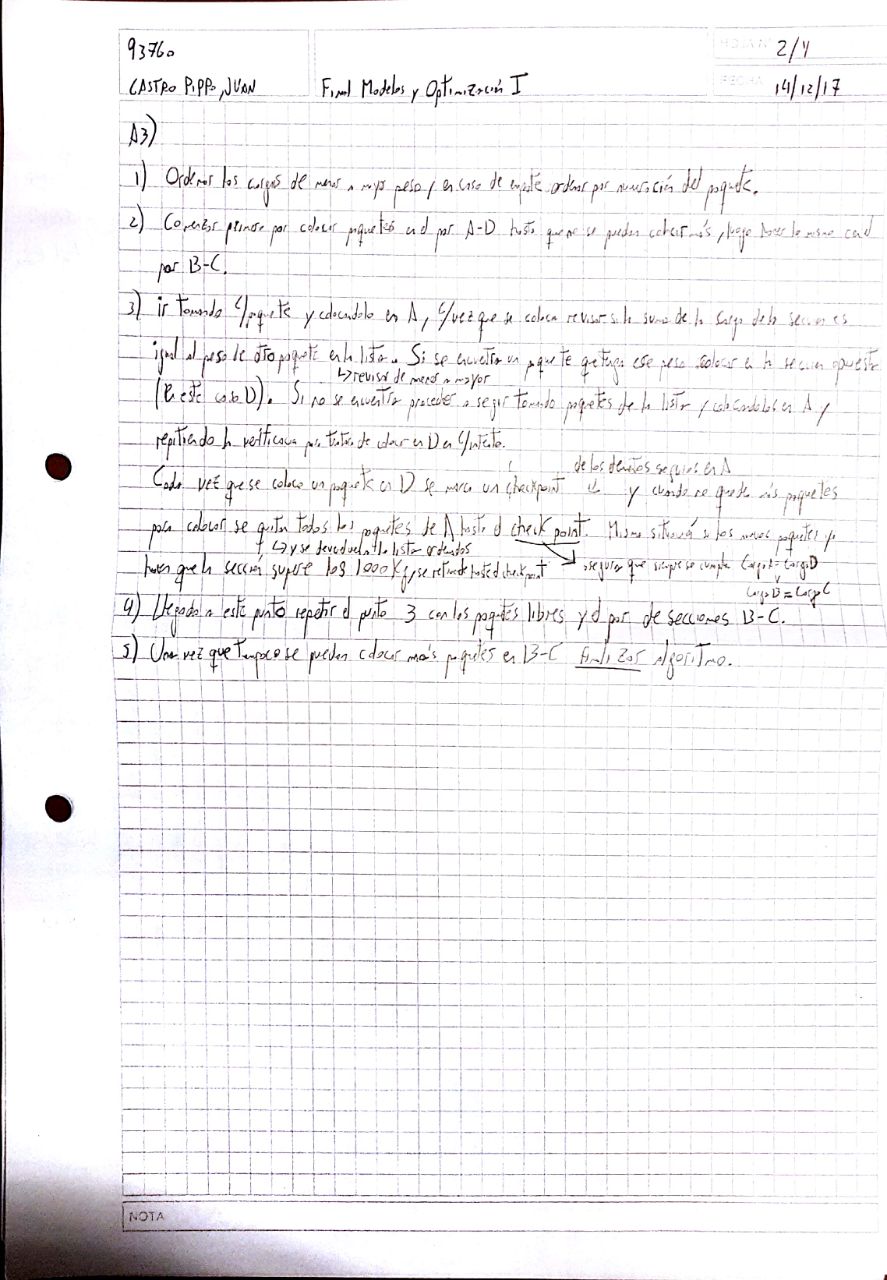 93760
HOJA Nº 2/4
CASTRO PIPPO, JUAN
Final Modelos y Optimización I
FECHA 14/12/17
A3)
1) Ordenar las cargas de menor a mayor peso, en caso de empate ordenar por numeración del paquete.
2) Comenzar primero por colocar paquetes en el par A-D hasta que no se puedan colocar más, luego hacer lo mismo con el
par B-C.
3) ir tomando c/paquete y colocandolo en A, c/vez que se coloca revisar si la suma de la carga de la seccion es
igual al peso de otro paquete en la lista. Si se encuentra un paquete que tenga ese peso colocar en la seccion opuesta
↳ revisar de menor a mayor
(En este caso D). Si no se encuentra proceder a seguir tomando paquetes de la lista y colocandolos en A y
repitiendo la verificacion para tratar de colocar en D en c/intento.
de los demás seguios en A
Cada vez que se coloca un paquete en D se marca un checkpoint y cuando no queden más paquetes
para colocar se quitan todos los paquetes de A hasta el check point. Misma situación si los nuevos paquetes
↳ y se devuelven a la lista ordenados
hacen que la seccion supere los 1000 Kg, se retiran hasta el checkpoint → asegurar que siempre se cumpla CargaA = CargaD
CargaB = CargaC
4) Llegado a este punto repetir el punto 3 con los paquetes libres y el par de secciones B-C.
5) Una vez que tampoco se puedan colocar más paquetes en B-C finalizar algoritmo.
NOTA